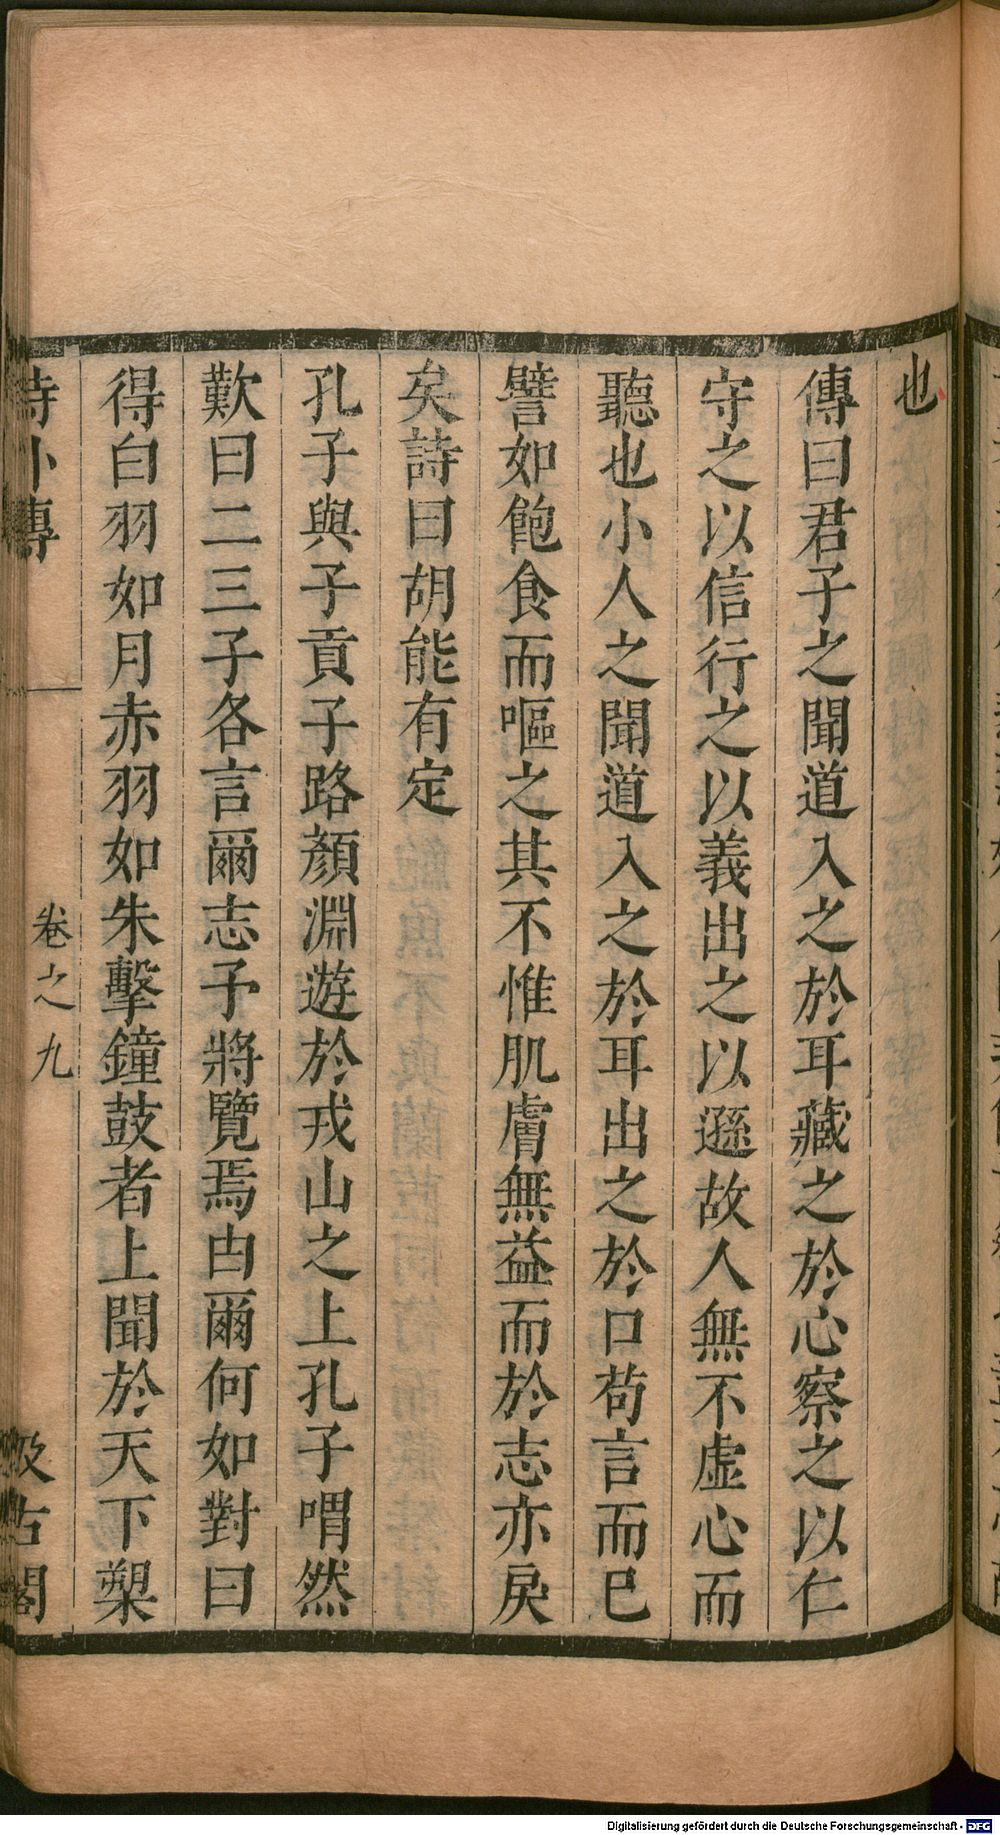 也
傳曰君子之聞道入之於耳藏之於心察之以仁
守之以信行之以義出之以遜故人無不虛心而
聽也小人之聞道入之於耳出之於口苟言而已
譬如飽食而嘔之其不惟肌膚無益而於志亦戾
矣詩曰胡能有定
孔子與子貢子路顏淵遊於戎山之上孔子喟然
歎曰二三子各言爾志予將覽焉由爾何如對曰
得白羽如月赤羽如朱擊鐘鼓者上聞於天下槊
詩外傳
卷之九
汲古閣
Digitalisierung gefördert durch die Deutsche Forschungsgemeinschaft - DFG